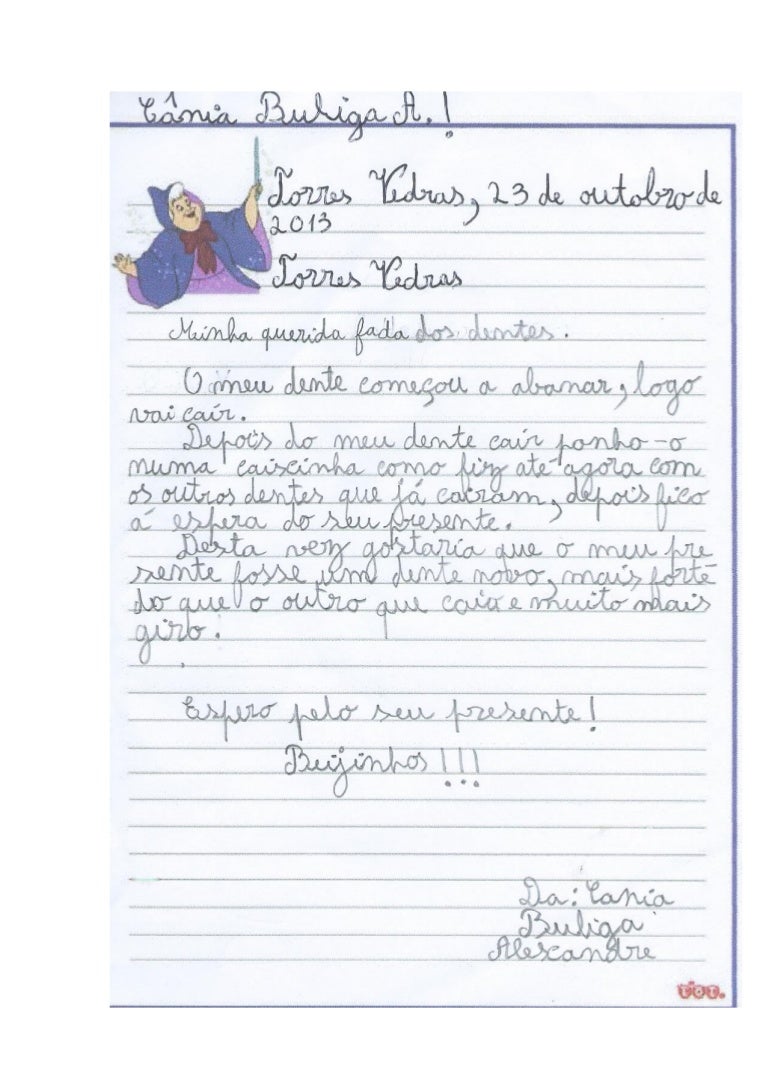 Tânia Buliga A.!
Torres Vedras, 23 de outobro de
2013
Torres Vedras
Minha querida fada dos dentes.
O meu dente começou a abanar, logo
vai caír.
Depois do meu dente cair ponho-o
numa caiscinha como fiz até agora com
os outros dentes que já caíram, depois fico
á espera do seu presente.
Desta vez gostaria que o meu pre
sente fosse um dente novo, mais forte
do que o outro que caiu e muito mais
giro.
Espero pelo seu presente!
Beijinhos!!!
Da: Tania
Buliga
Alexandre